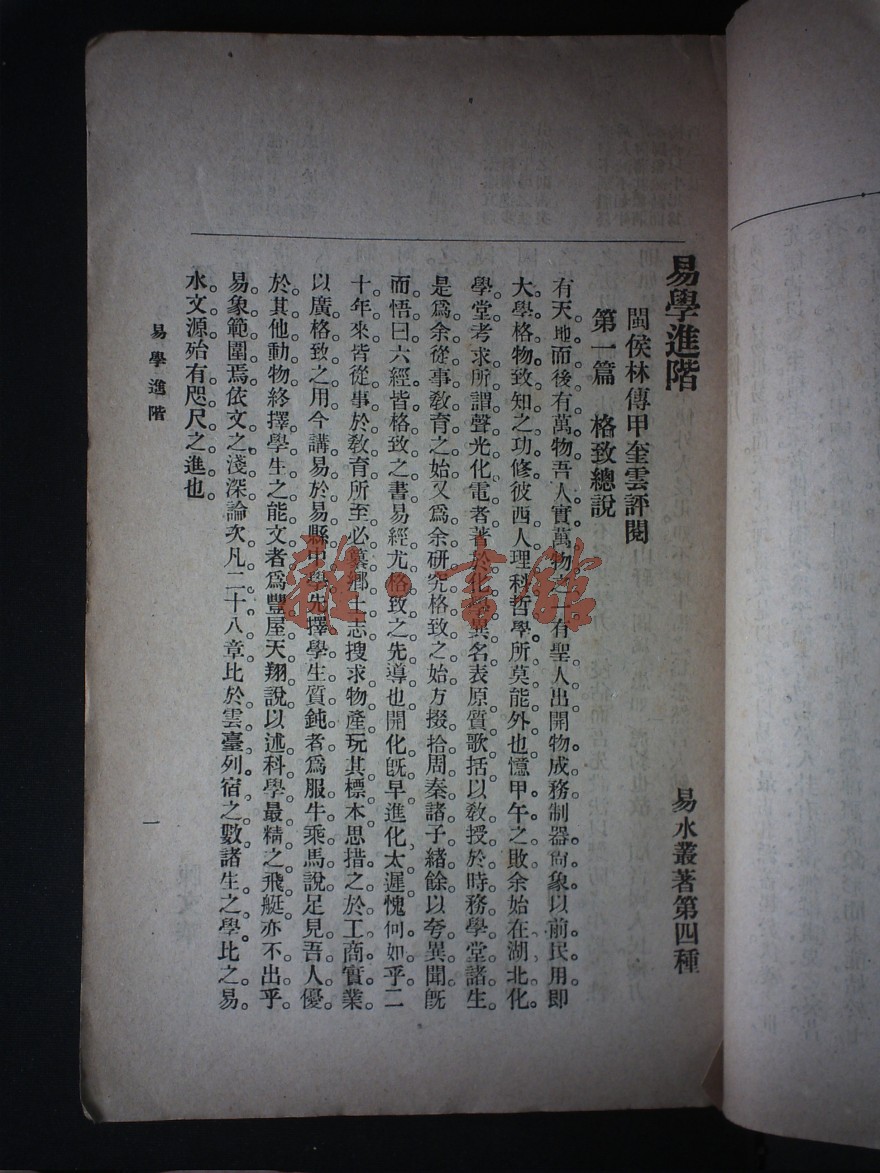 易學進階
易水叢著第四種
閩侯林傳甲奎雲評閱
第一篇　格致總說
有天地而後有萬物。吾人實萬物之一。有聖人出。開物成務。制器尙象。以前民用。卽
大學格物致知之功修。彼西人理科哲學。所莫能外也。憶甲午之敗。余始在湖北化
學堂考求所謂聲光化電者。著於化學異名表。原質歌括。以敎授於時務學堂諸生。
是爲余從事敎育之始。又爲余硏究格致之始。方掇拾周秦諸子緖餘。以夸異聞。旣
而悟曰。六經皆格致之書。易經尤格致之先導也。開化旣早。進化太遲。愧何如乎。二
十年來。皆從事於敎育。所至必纂鄕土志。搜求物產。玩其標本。思措之於工商實業。
以廣格致之用。今講易於易縣中學。先擇學生質鈍者。爲服牛乘馬說。足見吾人優
於其他動物。終擇學生之能文者。爲豐屋天翔說。以述科學最精之飛艇。亦不出乎
易象範圍焉。依文之淺深論次。凡二十八章。比於雲臺列宿之數。諸生之學。比之易
水文源。殆有咫尺之進也。
易學進階
一
雜·書館